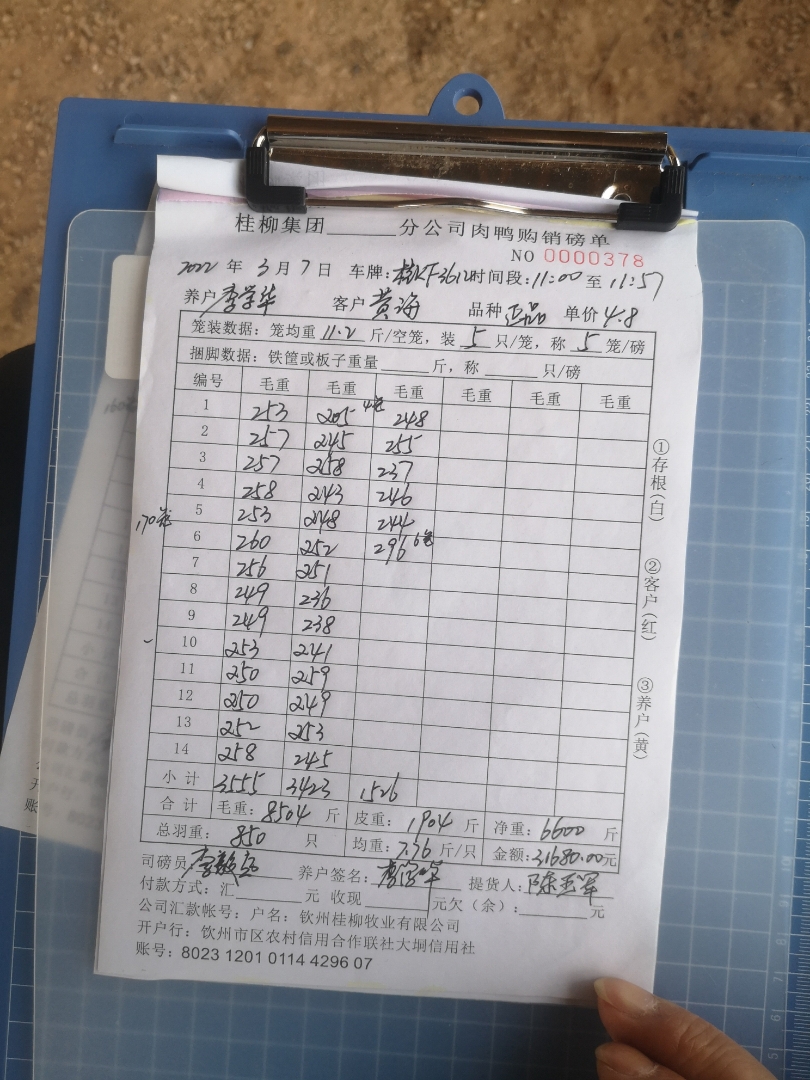 桂柳集团______分公司肉鸭购销磅单
NO 0000378
2022 年 3 月 7 日 车牌: 时间段:11:00 至 11:57
养户 李学华 客户 黄海 品种 正品 单价 4.8
笼装数据:笼均重 11.2 斤/空笼,装 5 只/笼,称 5 笼/磅
捆脚数据:铁筐或板子重量______斤,称______只/磅
编号 毛重 毛重 毛重 毛重 毛重 毛重
1 253 205 4笼 248
2 257 245 255
3 257 258 237
4 258 243 246
170笼 5 253 248 244
6 260 252 296 6笼
7 256 251
8 249 236
9 249 238
10 253 241
11 250 259
12 250 249
13 252 253
14 258 245
小计 3555 3423 1526
合计 毛重:8504 斤 皮重:1904 斤 净重:6600 斤
总羽重:850 只 均重:7.76 斤/只 金额:31680.00元
司磅员 养户签名: 提货人:
付款方式:汇______元 收现______元欠(余):______元
公司汇款帐号:户名:钦州桂柳牧业有限公司
开户行:钦州市区农村信用合作联社大垌信用社
账号:8023 1201 0114 4296 07
①存根(白)
②客户(红)
③养户(黄)